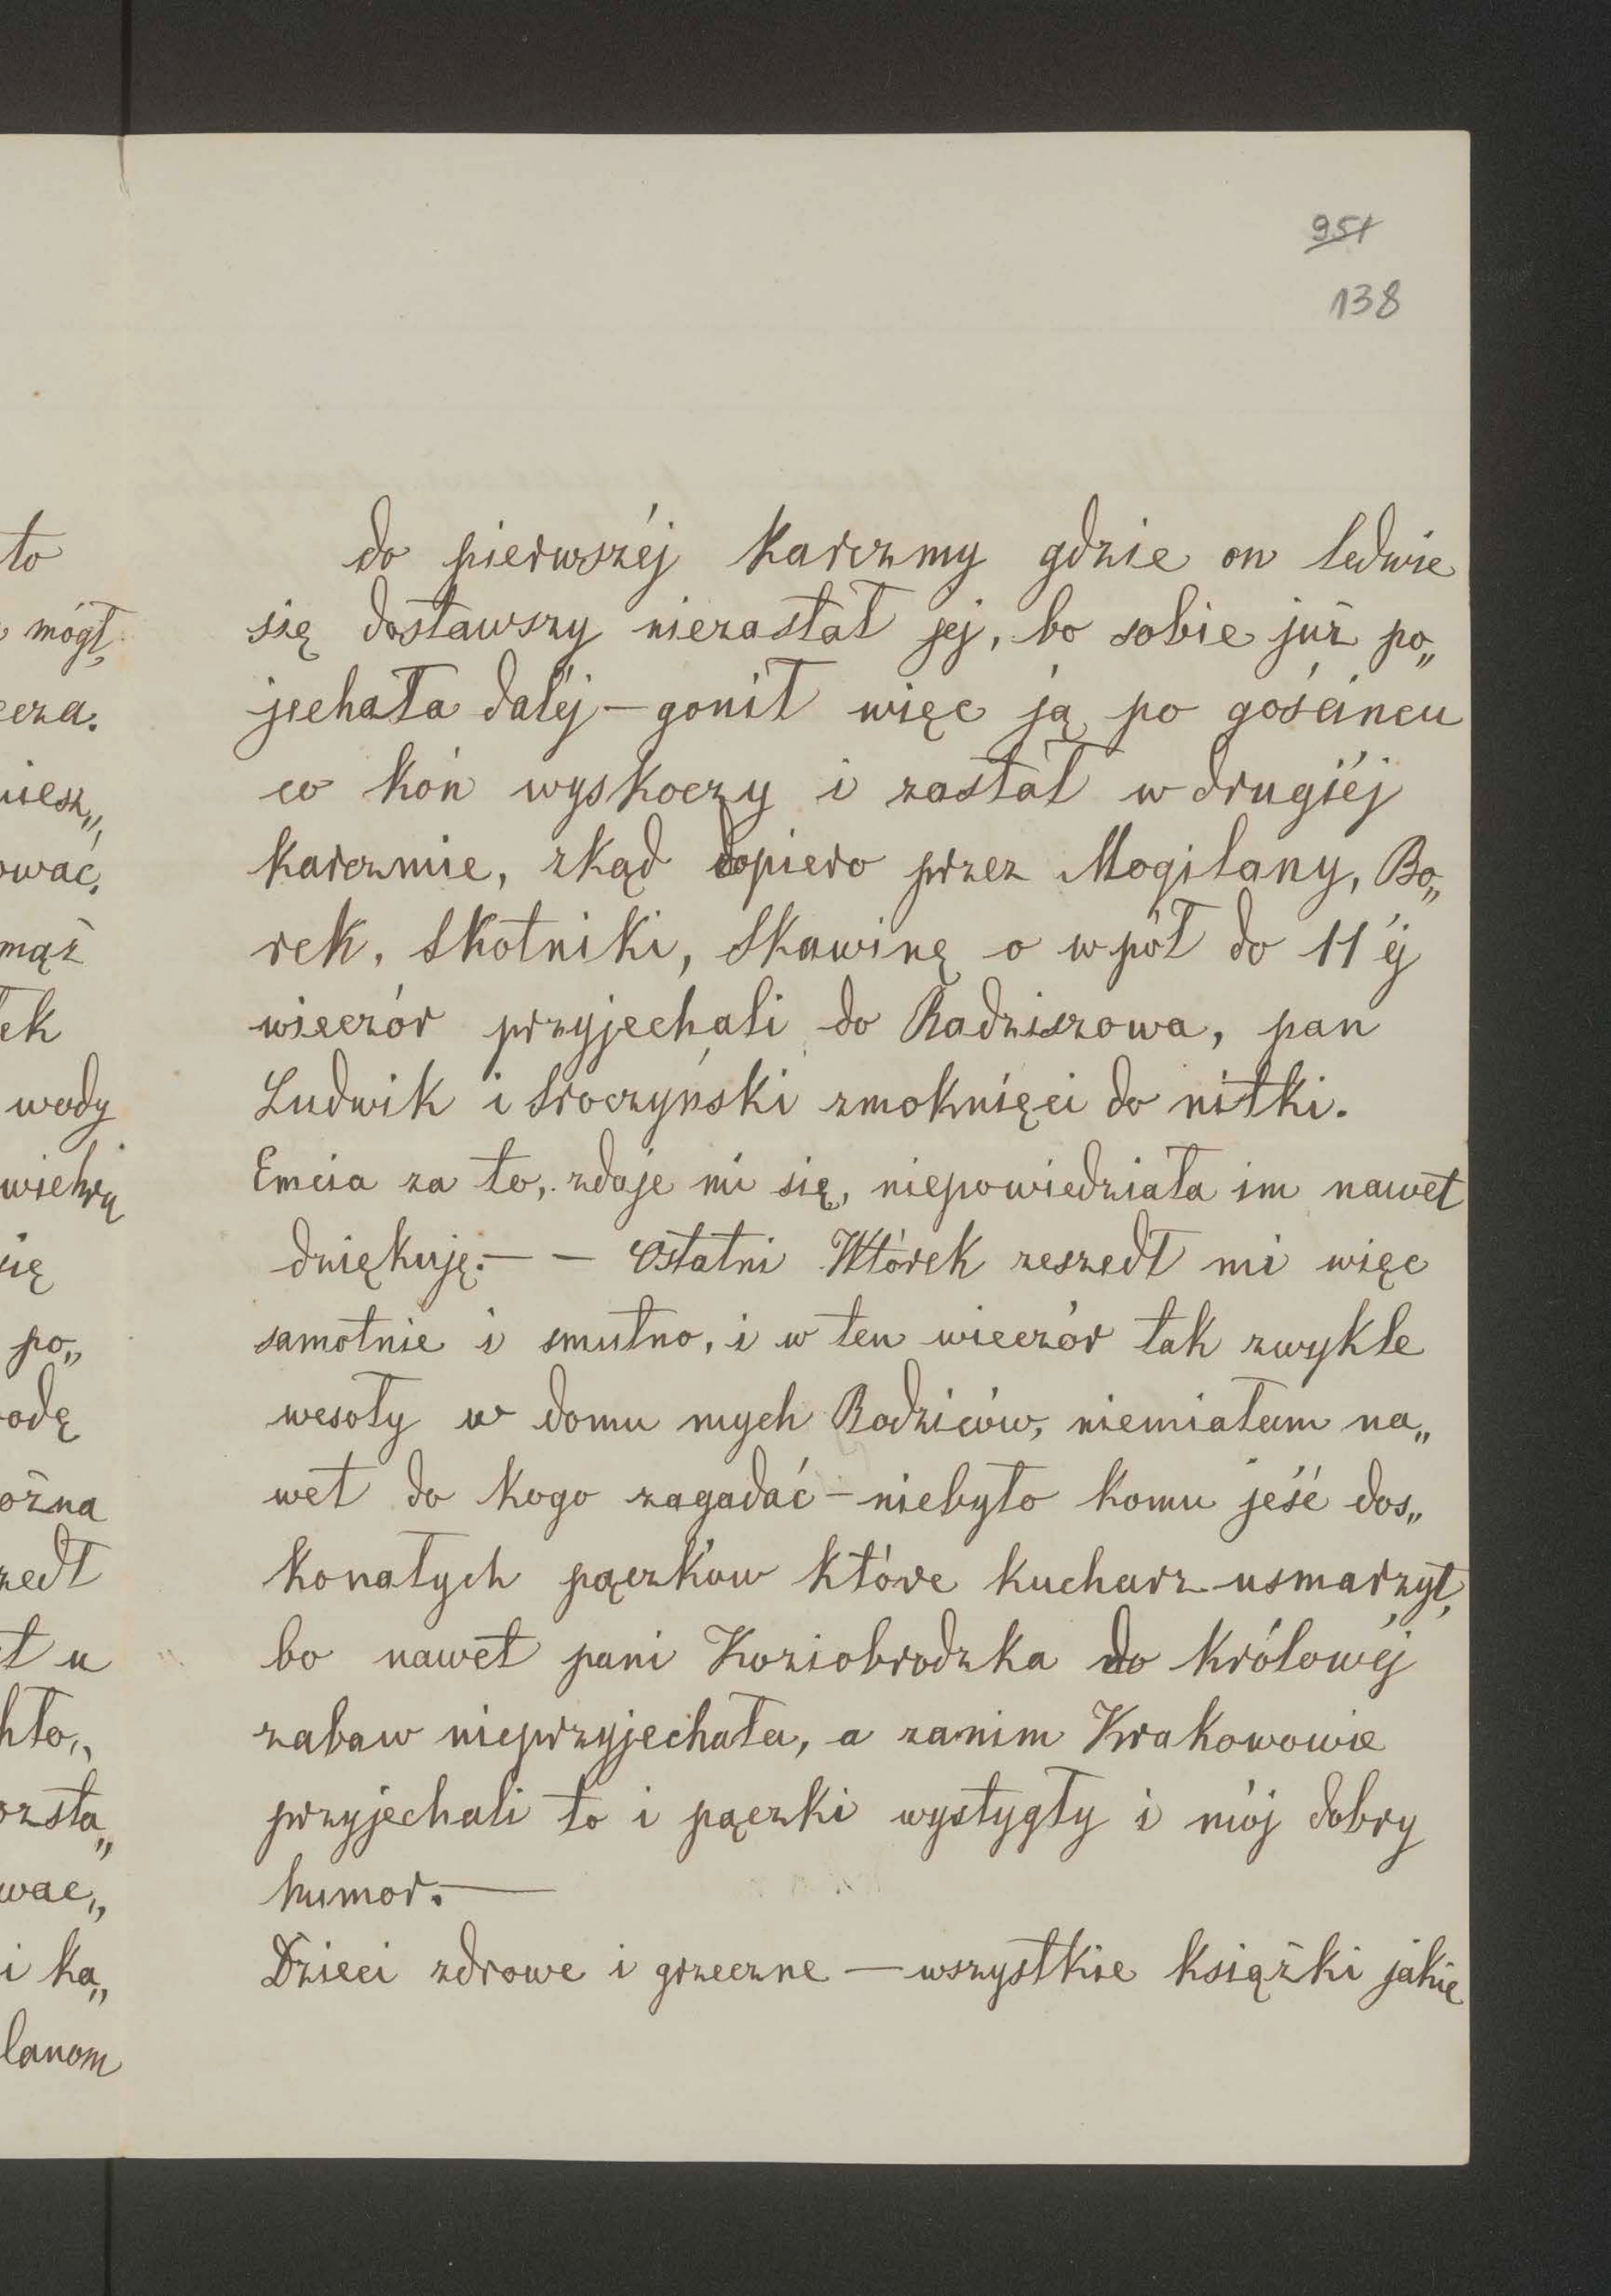 951
138
do pierwszéj karczmy gdzie on ledwie
się dostawszy niezastał jej, bo sobie już po„
jechała daléj – gonił więc ją po gościńcu
co koń wyskoczy i zastał w drugiéj
karczmie, zkąd dopiero przez Mogilany, Bo„
rek, Skotniki, Skawinę o wpół do 11 éj
wieczór przyjechali do Radziszowa, pan
Ludwik i Sroczyński zmoknięci do nitki.
Emcia za to, zdaje mi się, niepowiedziała im nawet
dziękuję. – – Ostatni Wtórek zeszedł mi więc
samotnie i smutno, i w ten wieczór tak zwykle
wesoły w domu mych Rodziców, niemiałam na„
wet do kogo zagadać – niebyło komu jeść dos„
konałych pączków które kucharz usmarzył,
bo nawet pani Koziobrodzka do królowéj
zabaw nieprzyjechała, a zanim Krakowowie
przyjechali to i pączki wystygły i mój dobry
humor. —
Dzieci zdrowe i grzeczne — wszystkie książki jakie
to
mógł
cza.
niesz„
ować,
mąż
ek
wody
się
po„
odę
ożna
zedł
ł u
hło„
ozsta„
wac„
i ka„
lanom